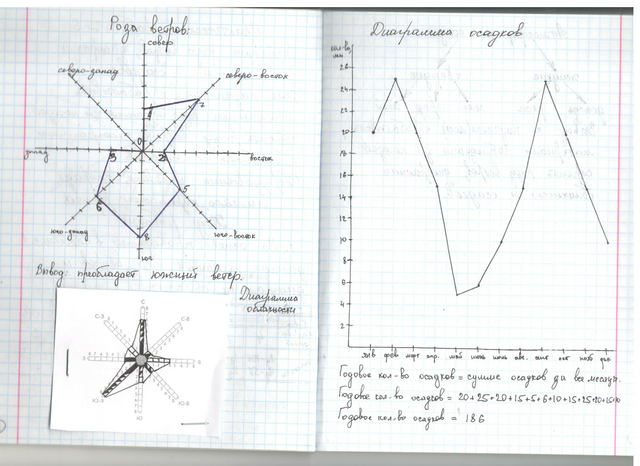 Роза ветров:
север
северо-запад
северо-восток
4
7
0
запад
3
2
восток
6
5
юго-запад
8
юго-восток
юг
Вывод: преобладает южный ветер.
Диаграмма
облачности
С
С-З
С-В
З
В
Ю-З
Ю-В
Ю
Диаграмма осадков
кол-во,
мм
26
24
22
20
18
16
14
12
10
8
6
4
2
янв фев март апр. май июнь июль авг. сент окт нояб дек
Годовое кол-во осадков = сумме осадков за все месяцы.
Годовое кол-во осадков = 20+25+20+15+5+6+10+15+25+20+15+10
Годовое кол-во осадков = 186